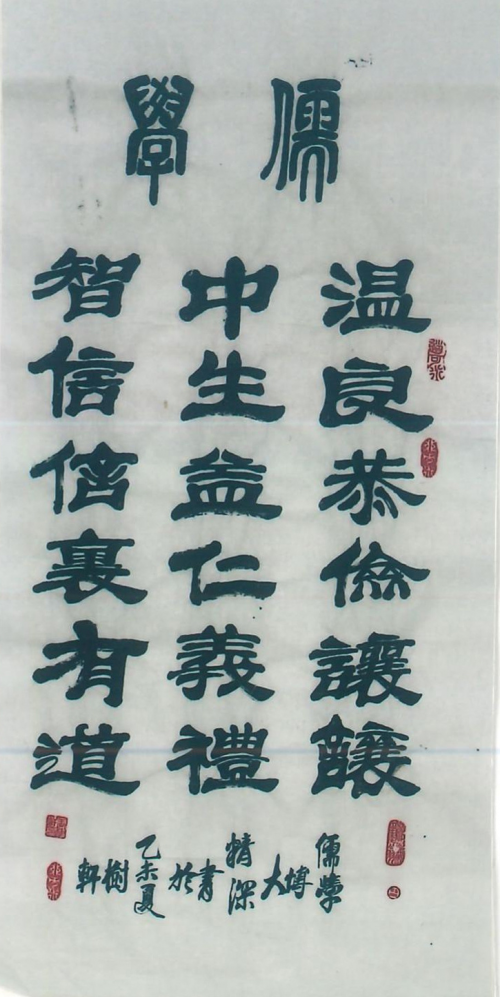 儒學
温良恭儉讓釀
中生益仁義禮
智信信裏有道
儒學
博大
精深
書於
乙未夏
樹軒